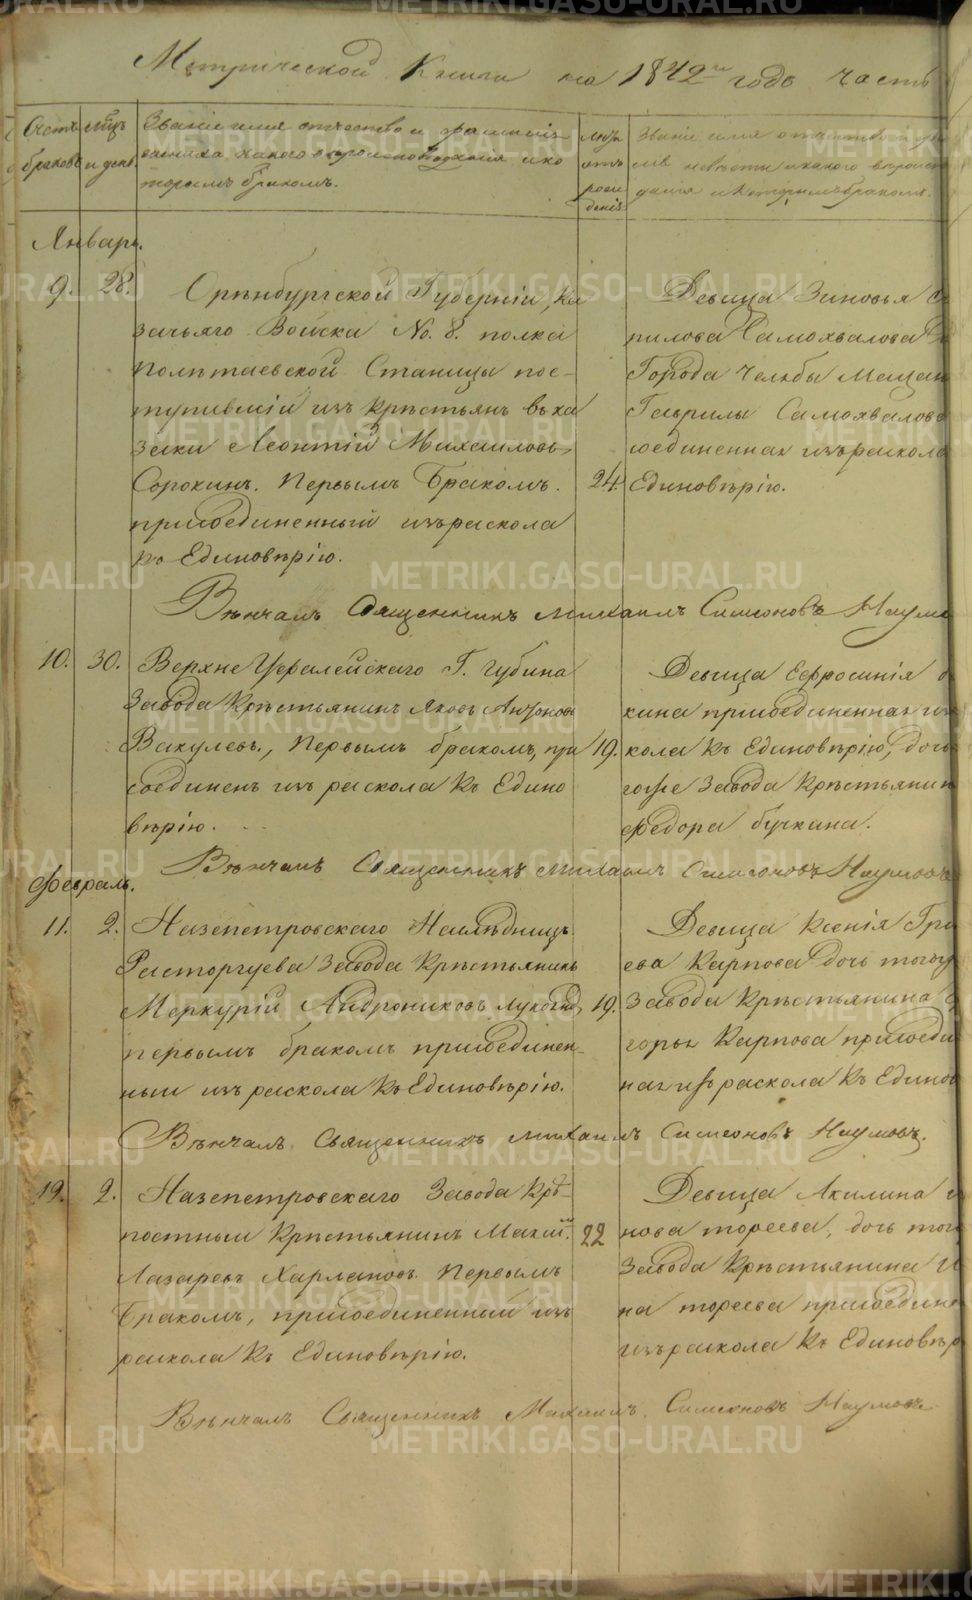 Метрической Книги на 1842й годъ часть
Счетъ браковъ
мцъ и день
Званіе имя отчество и фамилія
жениха какого вѣроисповѣданія и ко
торымъ бракомъ.
лѣтъ отъ рожденія
Званіе имя отчество и
невѣсты и какого вѣроиспо
данія и которымъ бракомъ.
Январь.
9. 28. Орѣнбургской Губерніи, Ка
зачьяго Войска No. 8. полка
Полтаевской Станицы пос-
тупившій изъ крѣстьянъ въ ка
заки Леонтій Михаиловъ
Сорокинъ. Первымъ Бракомъ.
присоединенный изъ раскола
къ Единовѣрію.
24.
Девица Зиновья
пилова Самохвалова
Города Челябы Мещан
Гаврилы Самохвалова
соединенная изъ раскола
Единовѣрію.
Вѣнчалъ Священникъ Михаилъ Симеоновъ Наумо
10. 30. Верхне Уфалейскаго Г. Губина
Завода Крѣстьянинъ Яковъ Антоновъ
Вакулевъ., Первымъ бракомъ, при
соединенъ изъ раскола Къ Едино
вѣрію.
19.
Девица Ефросинія
кина присоединенная из
кола Къ Единовѣрію, дочь
гоже Завода Крѣстьянин
Федора бучкина.
Вѣнчалъ Священникъ Михаилъ Симеоновъ Наумовъ
Февраль.
11. 2. Назепетровскаго Наслѣдницъ
Расторгуева Завода Крѣстьянинъ
Меркурій Андрониковъ
первымъ бракомъ присоединен-
ный изъ раскола Къ Единовѣрію.
19.
Девица Ксенія Гри
ева Карпова дочь тогоже
Завода Крѣстьянина
горья Карпова присоеди
ная изъ раскола Къ Единов
Вѣнчалъ Священникъ Михаилъ Симеоновъ Наумовъ.
2. Назепетровскаго Завода Крѣ-
постный Крѣстьянинъ
Лазаревъ Харлановъ Первымъ
Бракомъ, присоединенный изъ
раскола Къ Единовѣрію.
22
Девица Акилина
нова торсева, дочь того
Завода Крѣстьянина
на торсева присоедине
изъ раскола Къ Единовѣр
Вѣнчалъ Священникъ Михаилъ Симеоновъ Наумовъ
METRIKI.GASO-URAL.RU